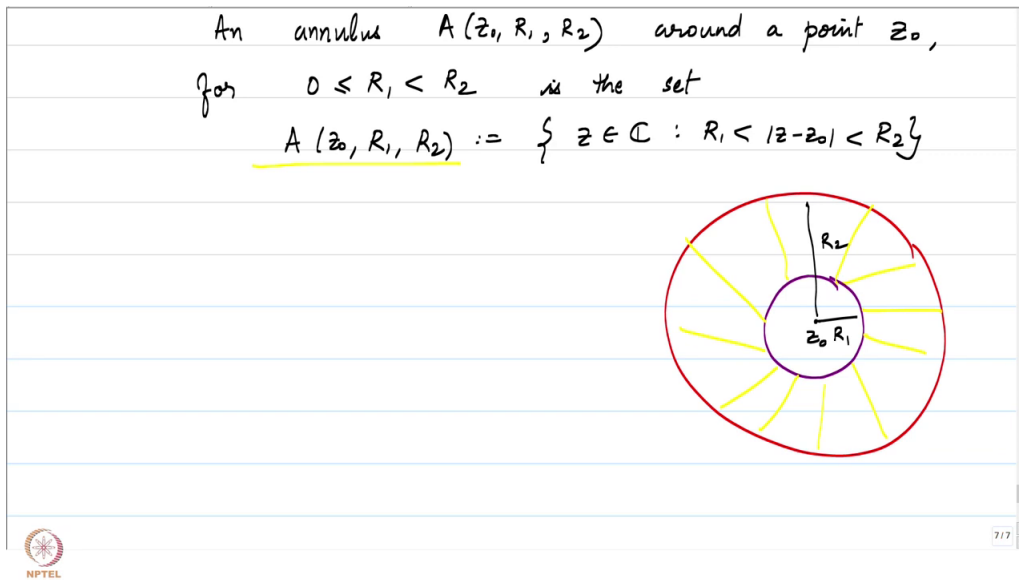 An annulus A (z₀, R₁, R₂) around a point z₀,
for 0 ≤ R₁ < R₂ is the set
A (z₀, R₁, R₂) := { z ∈ ℂ : R₁ < |z-z₀| < R₂}
R₂
z₀ R₁
7/7
NPTEL